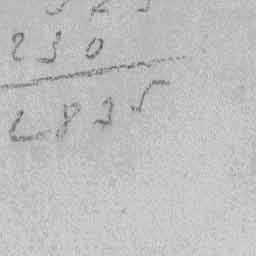 230
2835